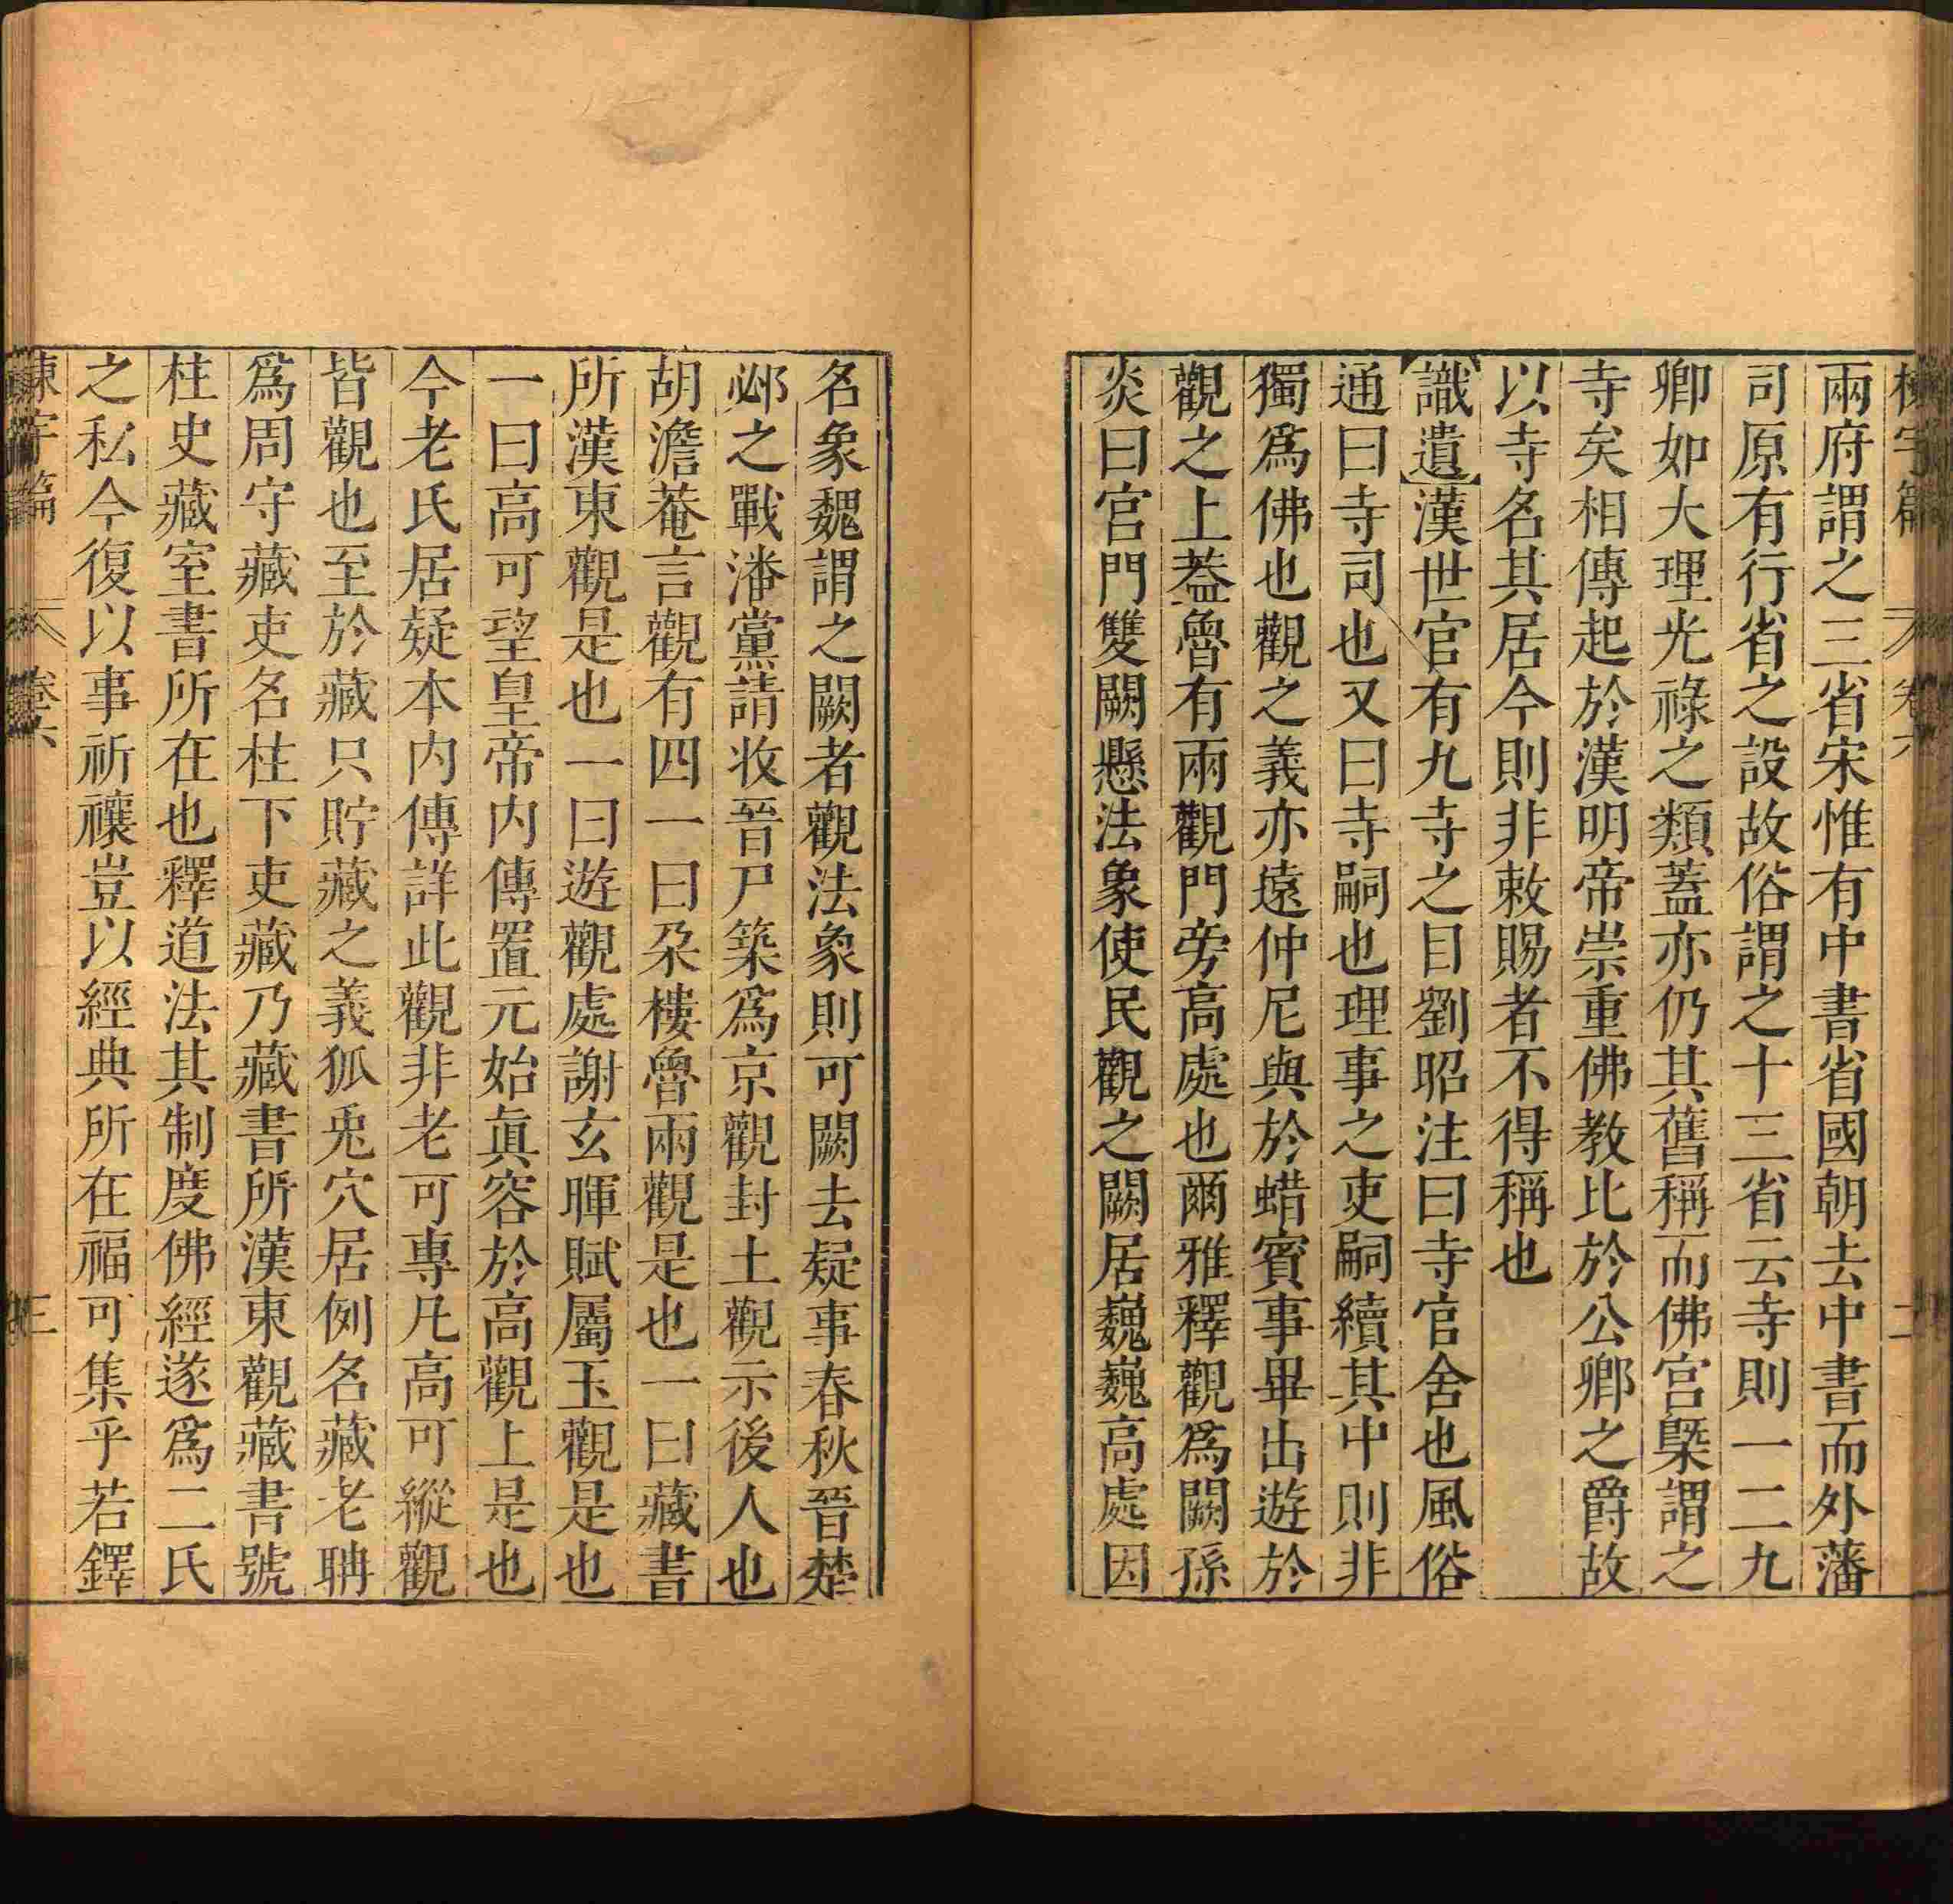 棟宇篇 卷六 二
兩府謂之三省宋惟有中書省國朝去中書而外藩
司原有行省之設故俗謂之十三省云寺則一二九
卿如大理光祿之類蓋亦仍其舊稱而佛宮槩謂之
寺矣相傳起於漢明帝崇重佛教比於公卿之爵故
以寺名其居今則非敕賜者不得稱也
【識遺】漢世官有九寺之目劉昭注曰寺官舍也風俗
通曰寺司也又曰寺嗣也理事之吏嗣續其中則非
獨爲佛也觀之義亦遠仲尼與於蜡賓事畢出遊於
觀之上葢魯有兩觀門旁高處也爾雅釋觀爲闕孫
炎曰宮門雙闕懸法象使民觀之闕居巍巍高處因
名象魏謂之闕者觀法象則可闕去疑事春秋晉楚
邲之戰潘黨請收晉尸築爲京觀封土觀示後人也
胡澹菴言觀有四一曰朶樓魯兩觀是也一曰藏書
所漢東觀是也一曰遊觀處謝玄暉賦屬玉觀是也
一曰高可望皇帝内傳置元始眞容於高觀上是也
今老氏居疑本内傳詳此觀非老可專凡高可縱觀
皆觀也至於藏只貯藏之義狐兎穴居例名藏老聃
爲周守藏吏名柱下吏藏乃藏書所漢東觀藏書號
柱史藏室書所在也釋道法其制度佛經遂爲二氏
之私今復以事祈禳豈以經典所在福可集乎若鐸
棟宇篇 卷六 三